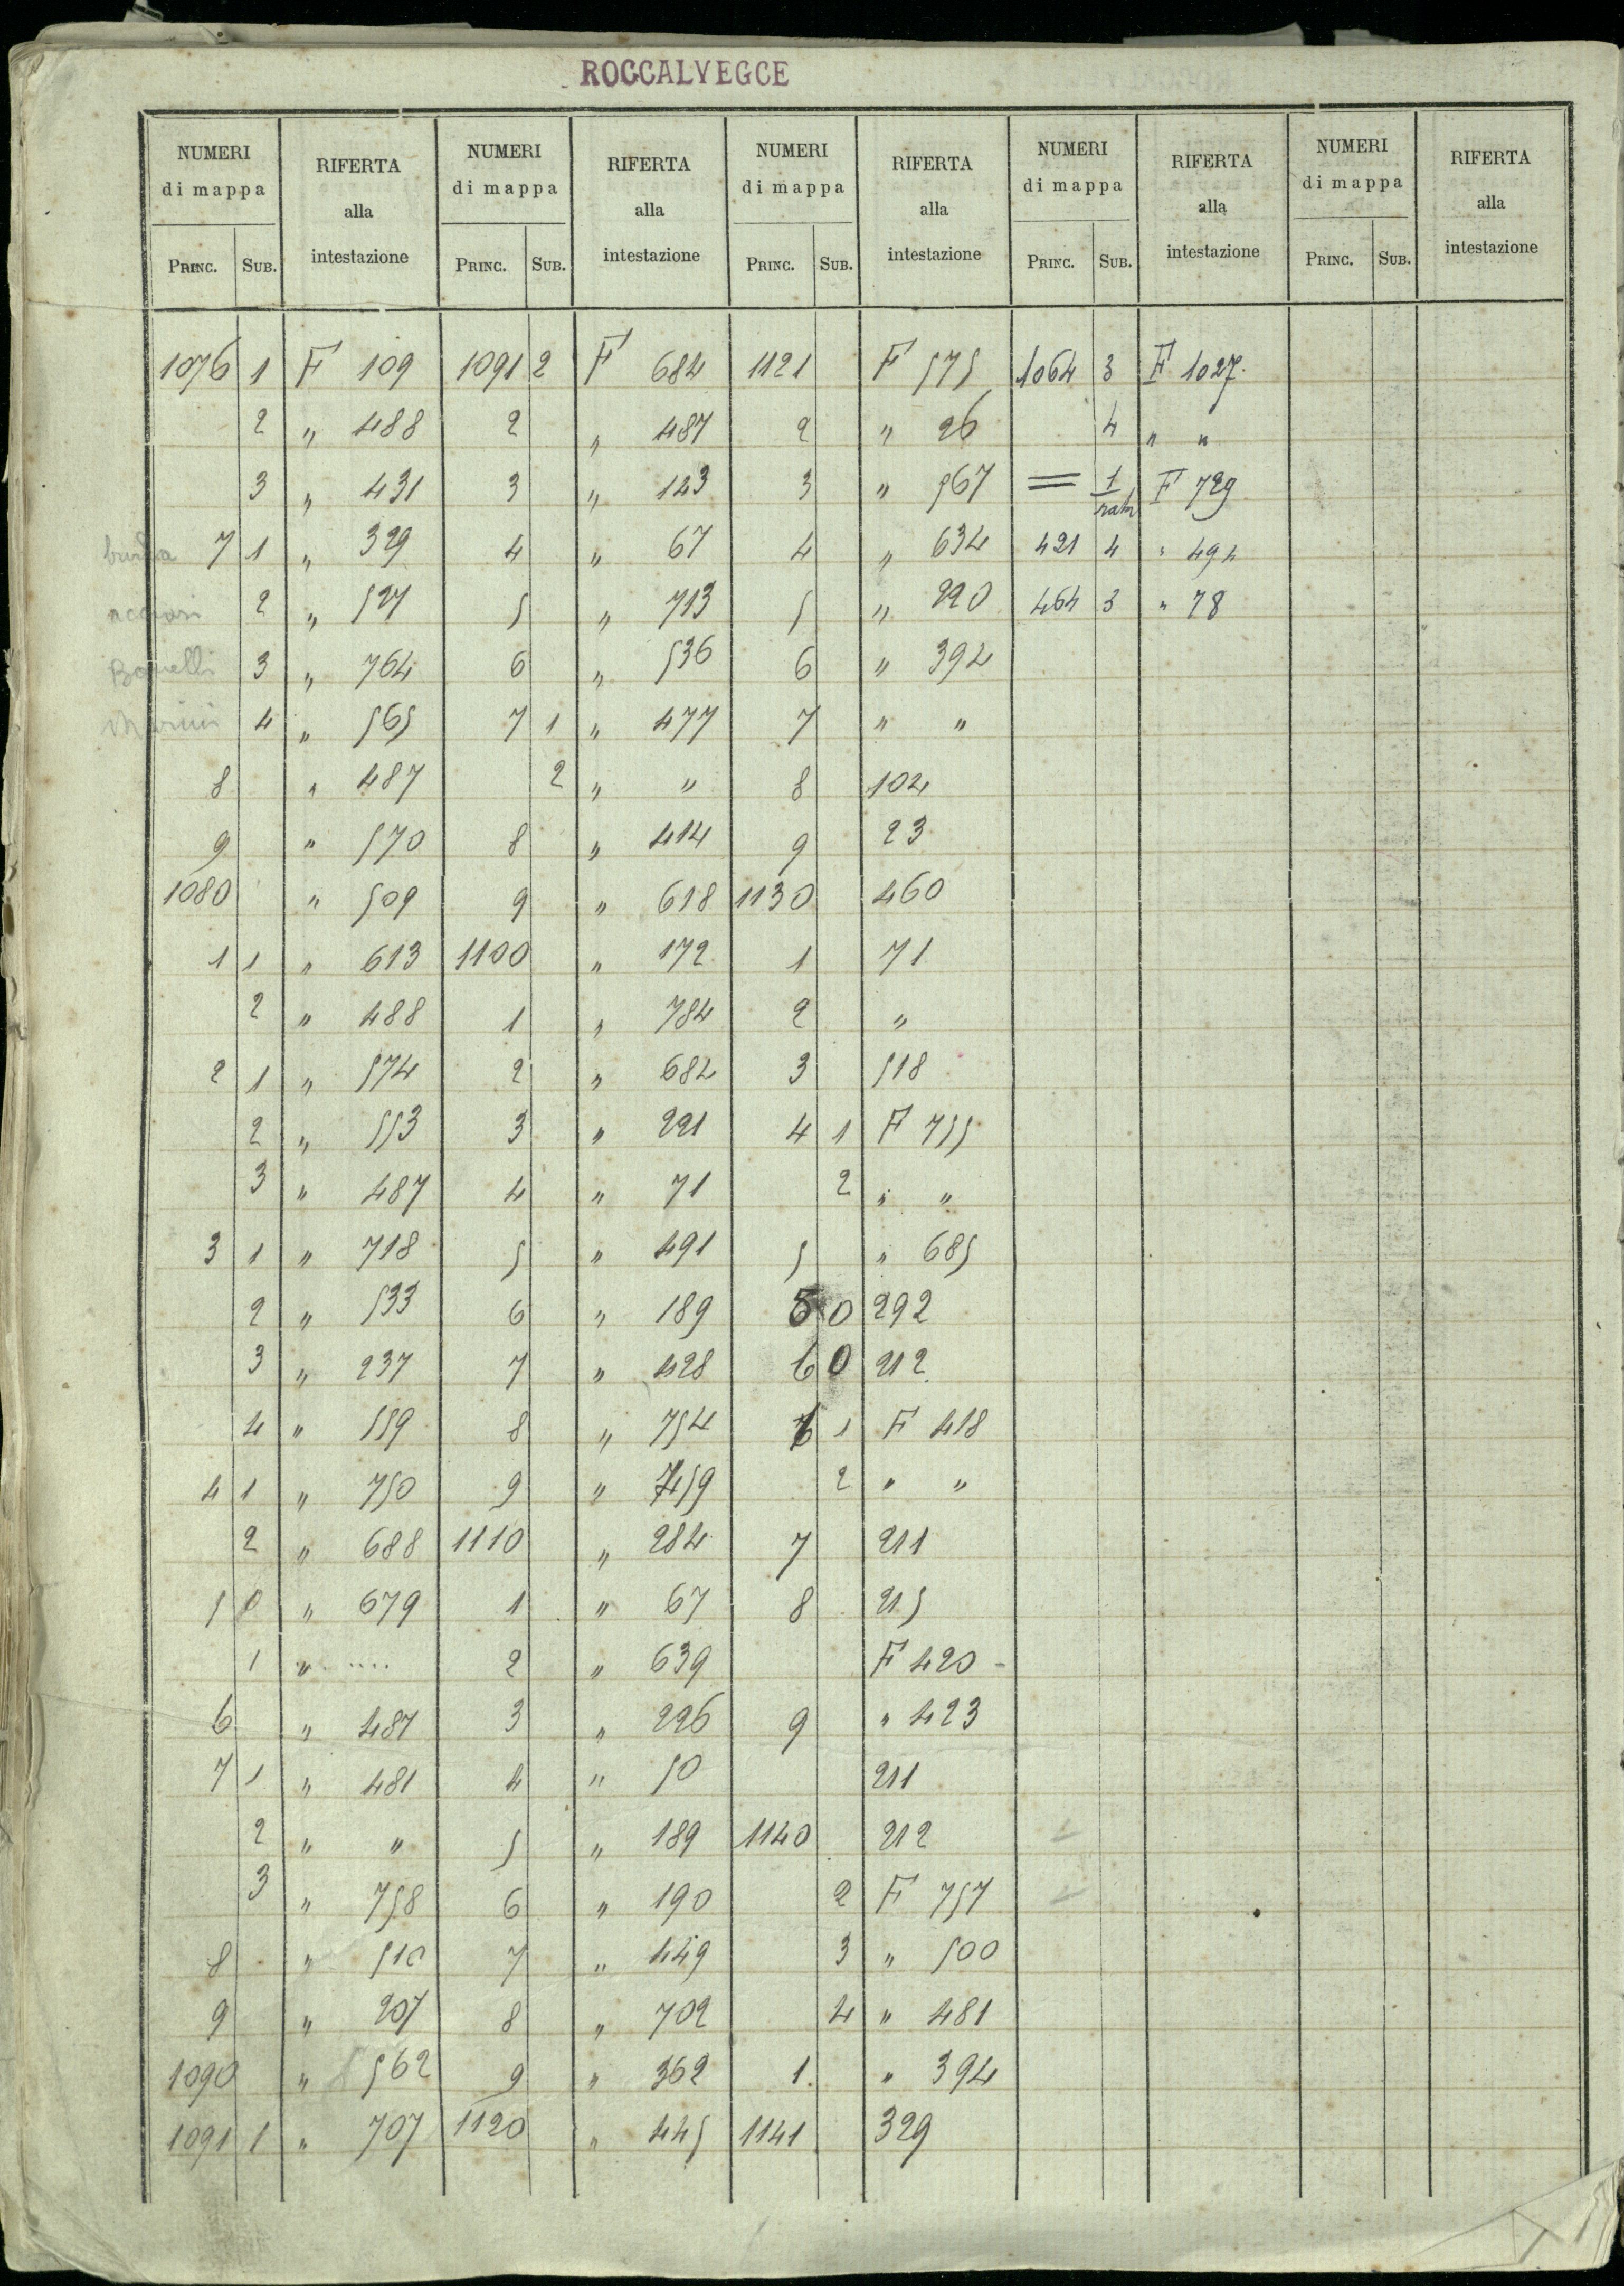 ROCCALVEGCE
NUMERI di mappa RIFERTA alla intestazione NUMERI di mappa RIFERTA alla intestazione NUMERI di mappa RIFERTA alla intestazione NUMERI di mappa RIFERTA alla intestazione NUMERI di mappa RIFERTA alla intestazione
PRINC. SUB. PRINC. SUB. PRINC. SUB. PRINC. SUB. PRINC. SUB.
1076 1 F 109 1091 2 F 684 1121 F 575 1064 3 F 1027.
2 „ 488 2 „ 487 2 „ 26 4 „ „
3 „ 431 3 „ 143 3 „ 567 = 1 F 729
7 1 „ 329 4 „ 67 4 „ 634 421 4 „ 494
2 „ 527 5 „ 713 5 „ 220 464 3 „ 78
Bonelli 3 „ 764 6 „ 536 6 „ 392
Marini 4 „ 565 7 1 „ 477 7 „ „
8 „ 487 2 „ „ 8 102
9 „ 570 8 „ 414 9 23
1080 „ 509 9 „ 618 1130 460
1 1 „ 613 1100 „ 172 1 71
2 „ 488 1 „ 784 2 „
2 1 „ 574 2 „ 682 3 518
2 „ 553 3 „ 221 4 1 F 755
3 „ 487 4 „ 71 2 „ „
3 1 „ 718 5 „ 491 5 „ 685
2 „ 533 6 „ 189 5 0 292
3 „ 237 7 „ 428 6 0 212
4 „ 559 8 „ 754 1 F 418
4 1 „ 750 9 „ 459 2 „ „
2 „ 688 1110 „ 284 7 211
5 0 „ 679 1 „ 67 8 215
1 „ .... 2 „ 639 F 420 -
6 „ 487 3 „ 226 9 „ 423
7 1 „ 481 4 „ 50 211
2 „ „ 5 „ 189 1140 212
3 „ 758 6 „ 190 2 F 757
8 „ 510 7 „ 449 3 „ 500
9 „ 207 8 „ 702 4 „ 481
1090 „ 562 9 „ 362 1 „ 394
1091 1 „ 707 1120 „ 445 1141 329